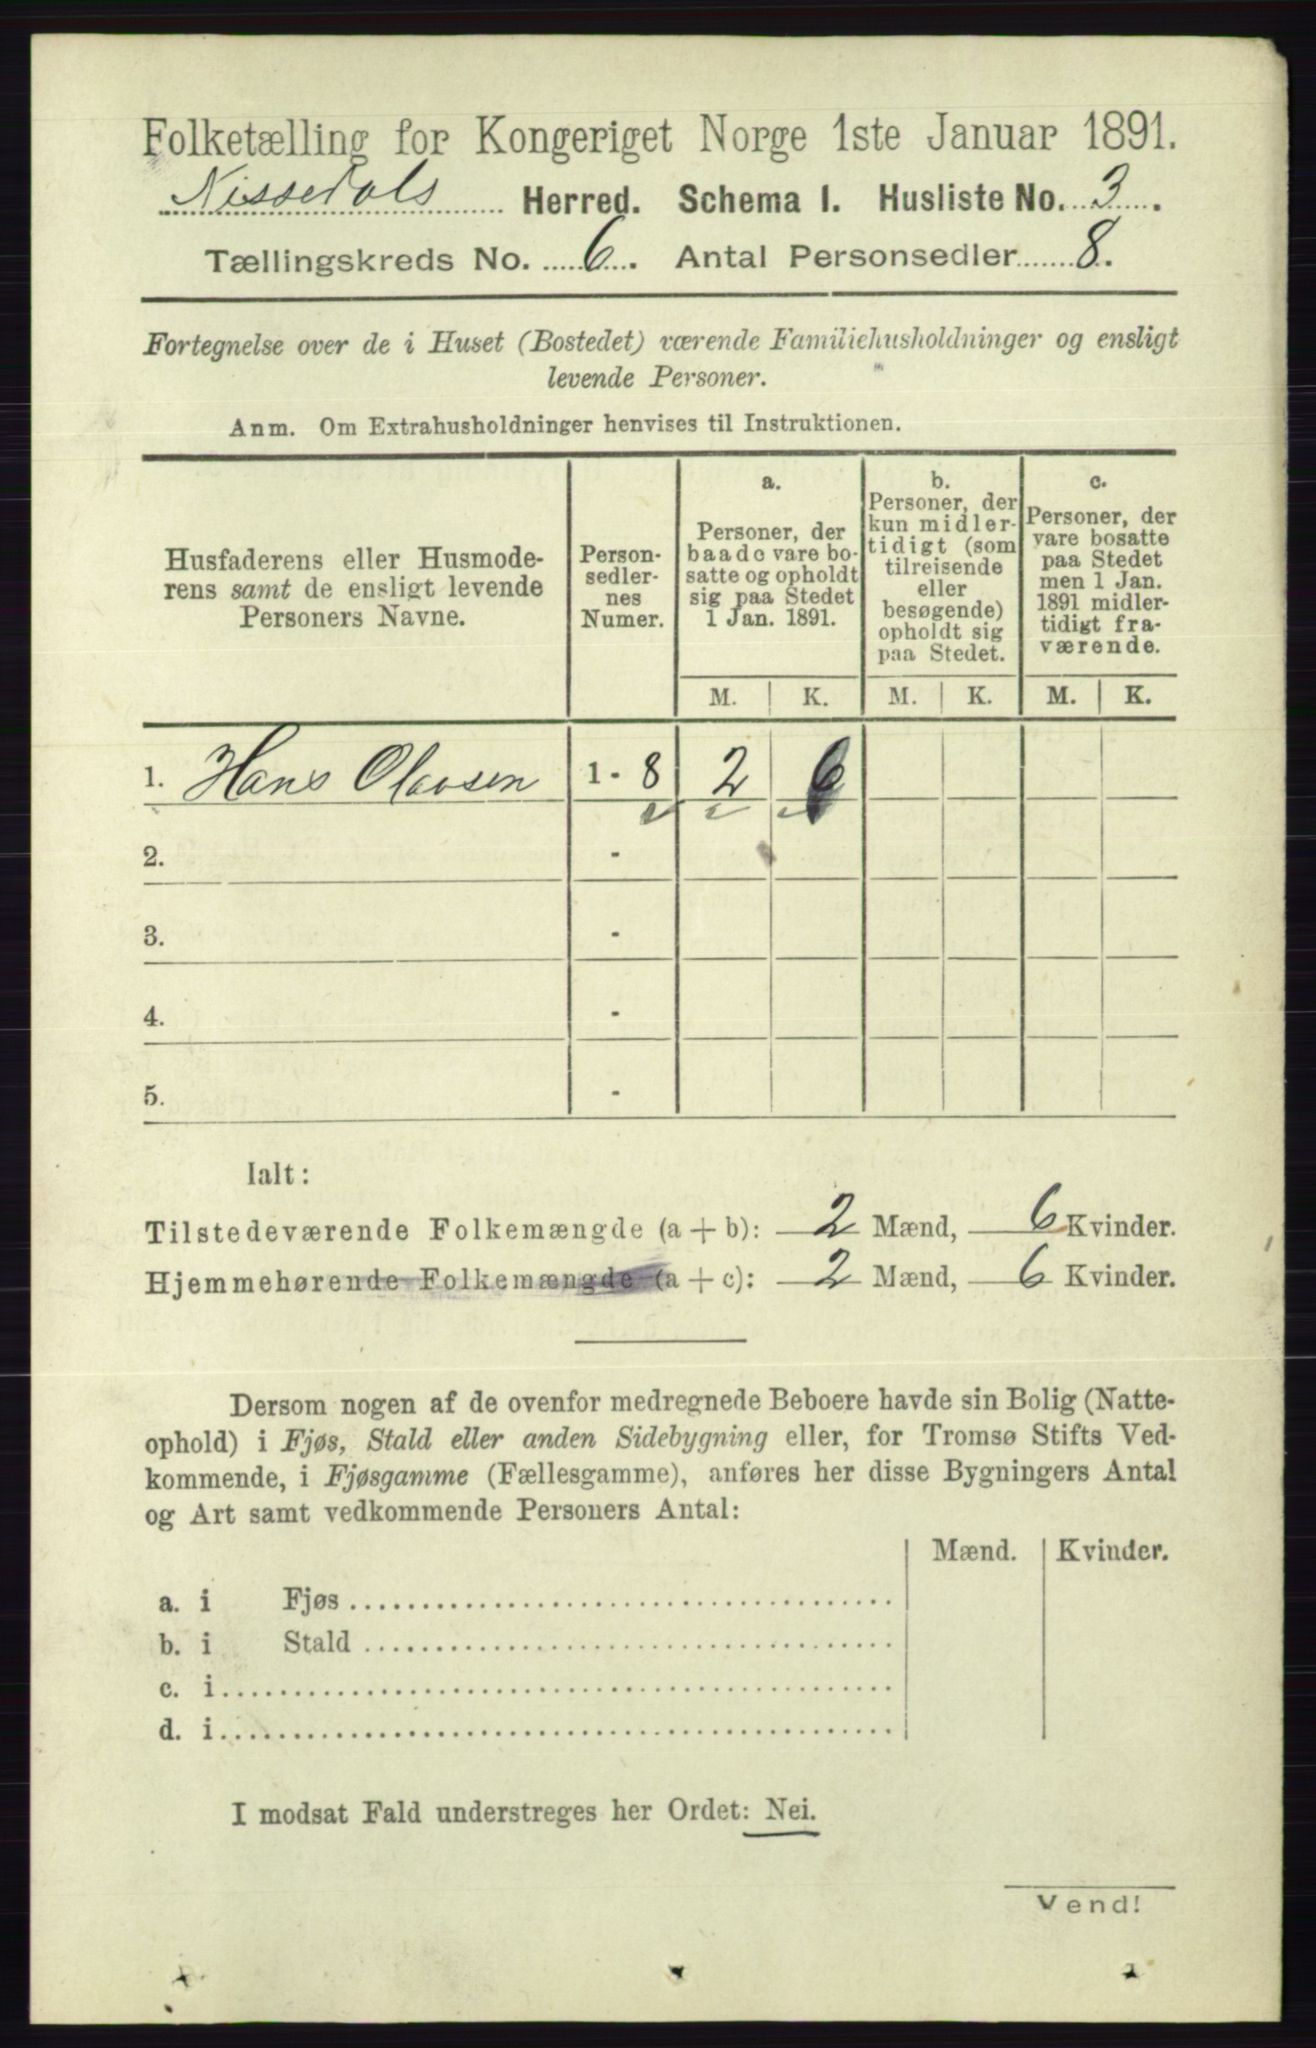 Folketælling for Kongeriget Norge 1ste Januar 1891.
Nissedals Herred. Schema I. Husliste No. 3.
Tællingskreds No. 6. Antal Personsedler 8.
Fortegnelse over de i Huset (Bostedet) værende Familiehusholdninger og ensligt
levende Personer.
Anm. Om Extrahusholdninger henvises til Instruktionen.
Husfaderens eller Husmode-
rens samt de ensligt levende
Personers Navne.
Person-
sedler-
nes
Numer.
a.
Personer, der
baade vare bo-
satte og opholdt
sig paa Stedet
1 Jan. 1891.
b.
Personer, der
kun midler-
tidigt (som
tilreisende
eller
besøgende)
opholdt sig
paa Stedet.
c.
Personer, der
vare bosatte
paa Stedet
men 1 Jan.
1891 midler-
tidigt fra-
værende.
M. K. M. K. M. K.
1. Hans Olavsen 1 - 8 2 6
2. -
3. -
4. -
5. -
Ialt:
Tilstedeværende Folkemængde (a + b): 2 Mænd, 6 Kvinder.
Hjemmehørende Folkemængde (a + c): 2 Mænd, 6 Kvinder.
Dersom nogen af de ovenfor medregnede Beboere havde sin Bolig (Natte-
ophold) i Fjøs, Stald eller anden Sidebygning eller, for Tromsø Stifts Ved-
kommende, i Fjøsgamme (Fællesgamme), anføres her disse Bygningers Antal
og Art samt vedkommende Personers Antal:
Mænd. Kvinder.
a. i Fjøs
b. i Stald
c. i
d. i
I modsat Fald understreges her Ordet: Nei.
Vend!